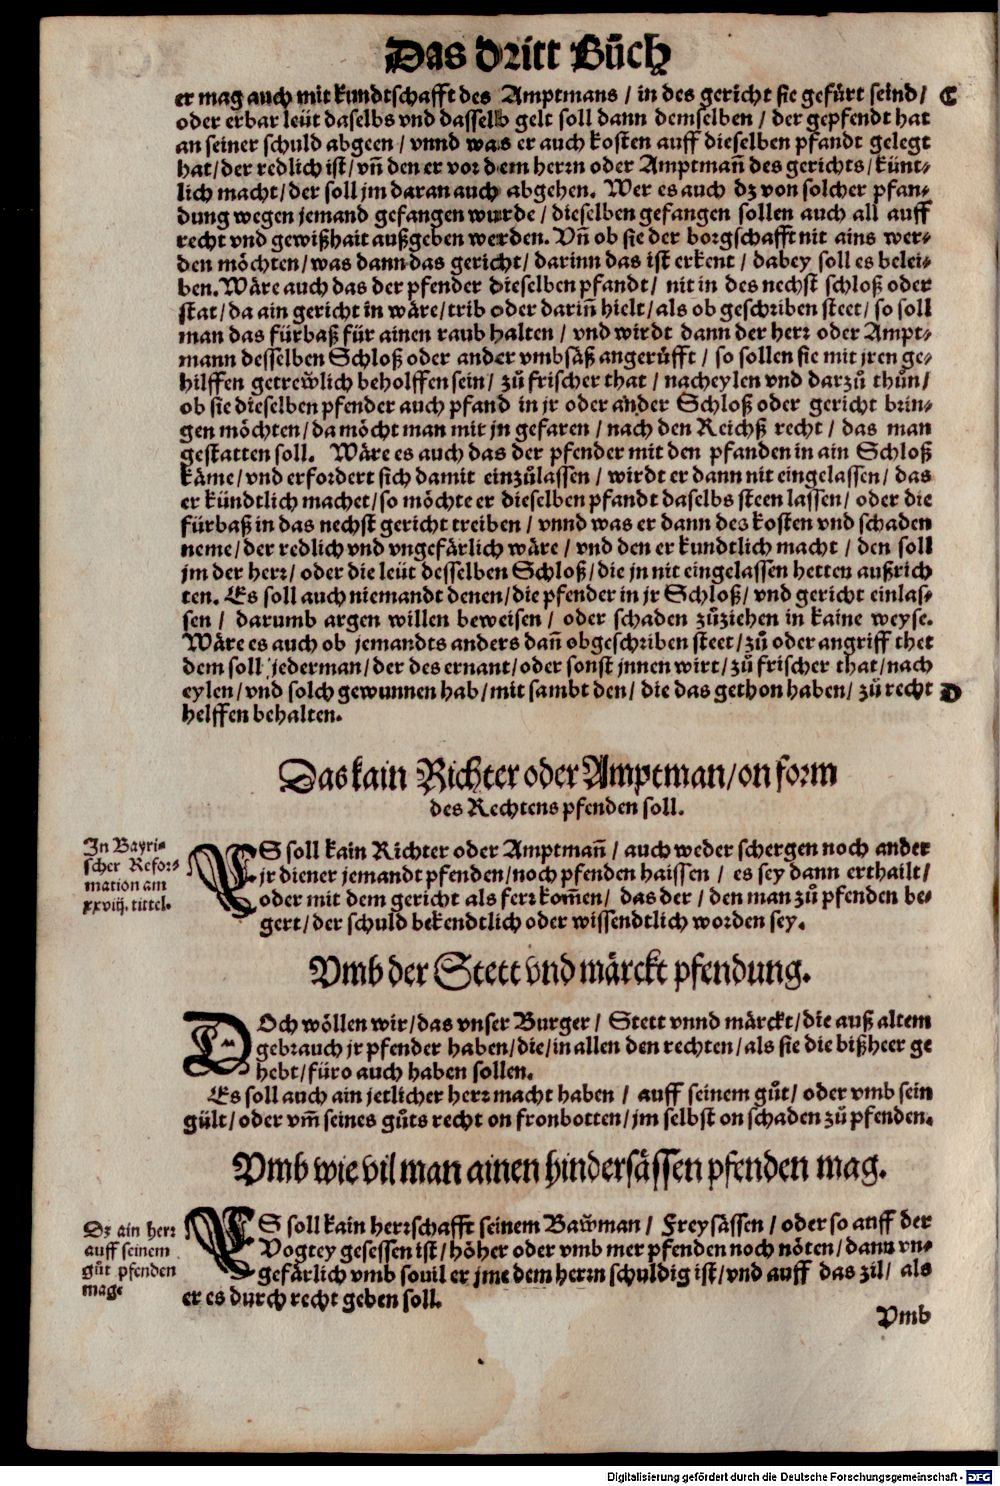 Das dritt Bůch
er mag auch mit kundtschafft des Amptmans / in des gericht sie gefürt seind / C
oder erbar leüt daselbs vnd dasselb gelt soll dann demselben / der gepfendt hat
an seiner schuld abgeen / vnnd was er auch kosten auff dieselben pfandt gelegt
hat / der redlich ist / vn̄ den er vor dem herrn oder Amptman̄ des gerichts / künt-
lich macht / der soll jm daran auch abgehen. Wer es auch dz von solcher pfan-
dung wegen jemand gefangen wurde / dieselben gefangen sollen auch all auff
recht vnd gewißhait außgeben werden. Vn̄ ob sie der borgschafft nit ains wer-
den möchten / was dann das gericht / darinn das ist erkent / dabey soll es belei-
ben. Wäre auch das der pfender dieselben pfandt / nit in des nechst schloß oder
stat / da ain gericht in wäre / trib oder darin̄ hielt / als ob geschriben steet / so soll
man das fürbaß für ainen raub halten / vnd wirdt dann der herr oder Ampt-
mann desselben Schloß oder ander vmbsäß angerůfft / so sollen sie mit jren ge-
hilffen getrewlich beholffen sein / zů frischer that / nacheylen vnd darzů thůn /
ob sie dieselben pfender auch pfand in jr oder ander Schloß oder gericht brin-
gen möchten / da möcht man mit jn gefaren / nach den Reichß recht / das man
gestatten soll. Wäre es auch das der pfender mit den pfanden in ain Schloß
käme / vnd erfordert sich damit einzůlassen / wirdt er dann nit eingelassen / das
er kündtlich machet / so möchte er dieselben pfandt daselbs steen lassen / oder die
fürbaß in das nechst gericht treiben / vnnd was er dann des kosten vnd schaden
neme / der redlich vnd vngefärlich wäre / vnd den er kundtlich macht / den soll
jm der herr / oder die leüt desselben Schloß / die jn nit eingelassen hetten außrich
ten. Es soll auch niemandt denen / die pfender in jr Schloß / vnd gericht einlas-
sen / darumb argen willen beweisen / oder schaden zůziehen in kaine weyse.
Wäre es auch ob jemandts anders dan̄ obgeschriben steet / zů oder angriff thet
dem soll jederman / der des ernant / oder sonst jnnen wirt / zů frischer that / nach
eylen / vnd solch gewunnen hab / mit sambt den / die das gethon haben / zů recht D
helffen behalten.
Das kain Richter oder Amptman / on form
des Rechtens pfenden soll.
In Bayri-
scher Refor-
mation am
xxviij. tittel.
ES soll kain Richter oder Amptman̄ / auch weder schergen noch ander
jr diener jemandt pfenden / noch pfenden haissen / es sey dann erthailt /
oder mit dem gericht als ferr kom̄en / das der / den man zů pfenden be-
gert / der schuld bekendtlich oder wissendtlich worden sey.
Vmb der Stett vnd märckt pfendung.
DOch wöllen wir / das vnser Burger / Stett vnnd märckt / die auß altem
gebrauch jr pfender haben / die / in allen den rechten / als sie die bißheer ge
hebt / füro auch haben sollen.
Es soll auch ain jetlicher herr macht haben / auff seinem gůt / oder vmb sein
gült / oder vm̄ seines gůts recht on fronbotten / jm selbst on schaden zů pfenden.
Vmb wie vil man ainen hindersässen pfenden mag.
Dz ain herr
auff seinem
gůt pfenden
mag.
ES soll kain herrschafft seinem Bawman / Freysässen / oder so auff der
Vogtey gesessen ist / höher oder vmb mer pfenden noch nöten / dann vn-
gefärlich vmb souil er jme dem herrn schuldig ist / vnd auff das zil / als
er es durch recht geben soll.
Vmb
Digitalisierung gefördert durch die Deutsche Forschungsgemeinschaft - DFG